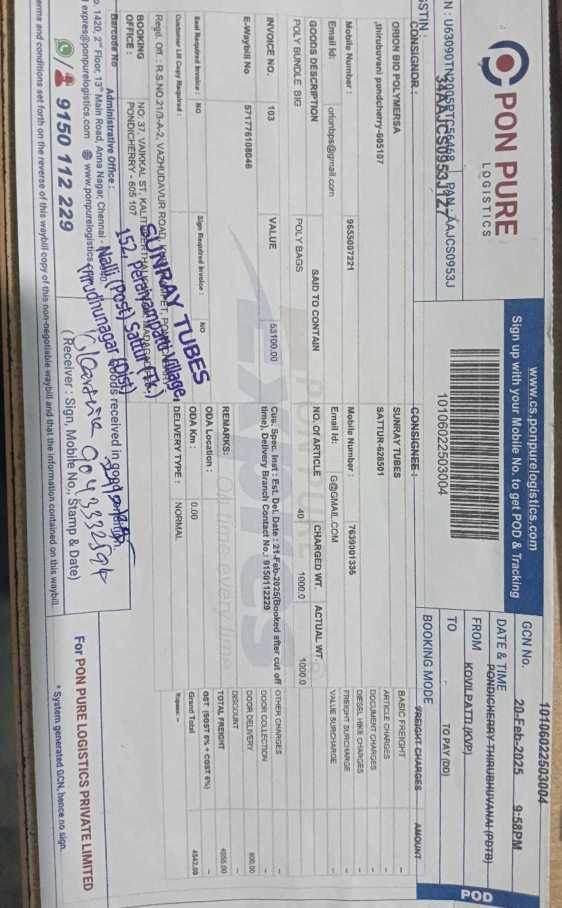 PON PURE
LOGISTICS
www.cs.ponpurelogistics.com
Sign up with your Mobile No. to get POD & Tracking
10106022503004
10106022503004
GCN No.
DATE & TIME 20-Feb-2025 9:58PM
FROM PONDICHERRY-THIRUBHUVANAI (PDTB)
KOVILPATTI (KVP)
TO
BOOKING MODE TO PAY (DD)
POD
PAN : AAJCS0953J
CONSIGNOR :
ORION BIO POLYMERSA
,thirubuvani pondcherry-605107
Mobile Number : 9655007221
Email Id: orionbps@gmail.com
CONSIGNEE :
SUNRAY TUBES
SATTUR-626501
Mobile Number : 7639001336
Email Id: G@GMAIL.COM
GOODS DESCRIPTION SAID TO CONTAIN NO. OF ARTICLE CHARGED WT. ACTUAL WT
POLY BUNDLE BIG POLY BAGS 40 1000.0 1000.0
INVOICE NO. 103 VALUE 53100.00
E-Waybill No 571776108046
Cus. Spec. Inst : Est. Del. Date : 21-Feb-2025(Booked after cut off
time), Delivery Branch Contact No.: 9150112229
REMARKS:
Seal Required Invoice : NO Sign Required Invoice : NO
Customer LR Copy Required :
ODA Location :
ODA Km : 0.00
DELIVERY TYPE : NORMAL
FREIGHT CHARGES AMOUNT
BASIC FREIGHT -
ARTICLE CHARGES -
DOCUMENT CHARGES -
DIESEL HIKE CHARGES -
FREIGHT SURCHARGE -
VALUE SURCHARGE -
OTHER CHARGES -
DOOR COLLECTION -
DOOR DELIVERY 800.00
DISCOUNT -
TOTAL FREIGHT
GST (SGST 6% + CGST 6%) -
Grand Total
Rupees :-
Regd. Off : R.S.NO.21/3-A-2, VAZHUDAVUR ROAD,
BOOKING
OFFICE :
NO: 37, VAIKKAL ST,
PONDICHERRY - 605 107
SUNRAY TUBES
Nalli (Post) Sattur (Tk.)
Virudhunagar (Dist)
Barcode No
Administrative Office :
1420, 2nd Floor, 13th Main Road, Anna Nagar, Chennai -
expres@ponpurelogistics.com www.ponpurelogistics.
9150 112 229
Goods received in good condition.
(Receiver : Sign, Mobile No., Stamp & Date)
For PON PURE LOGISTICS PRIVATE LIMITED
* System generated GCN, hence no sign.
terms and conditions set forth on the reverse of this waybill copy of this non-negotiable waybill and that the information contained on this waybill.